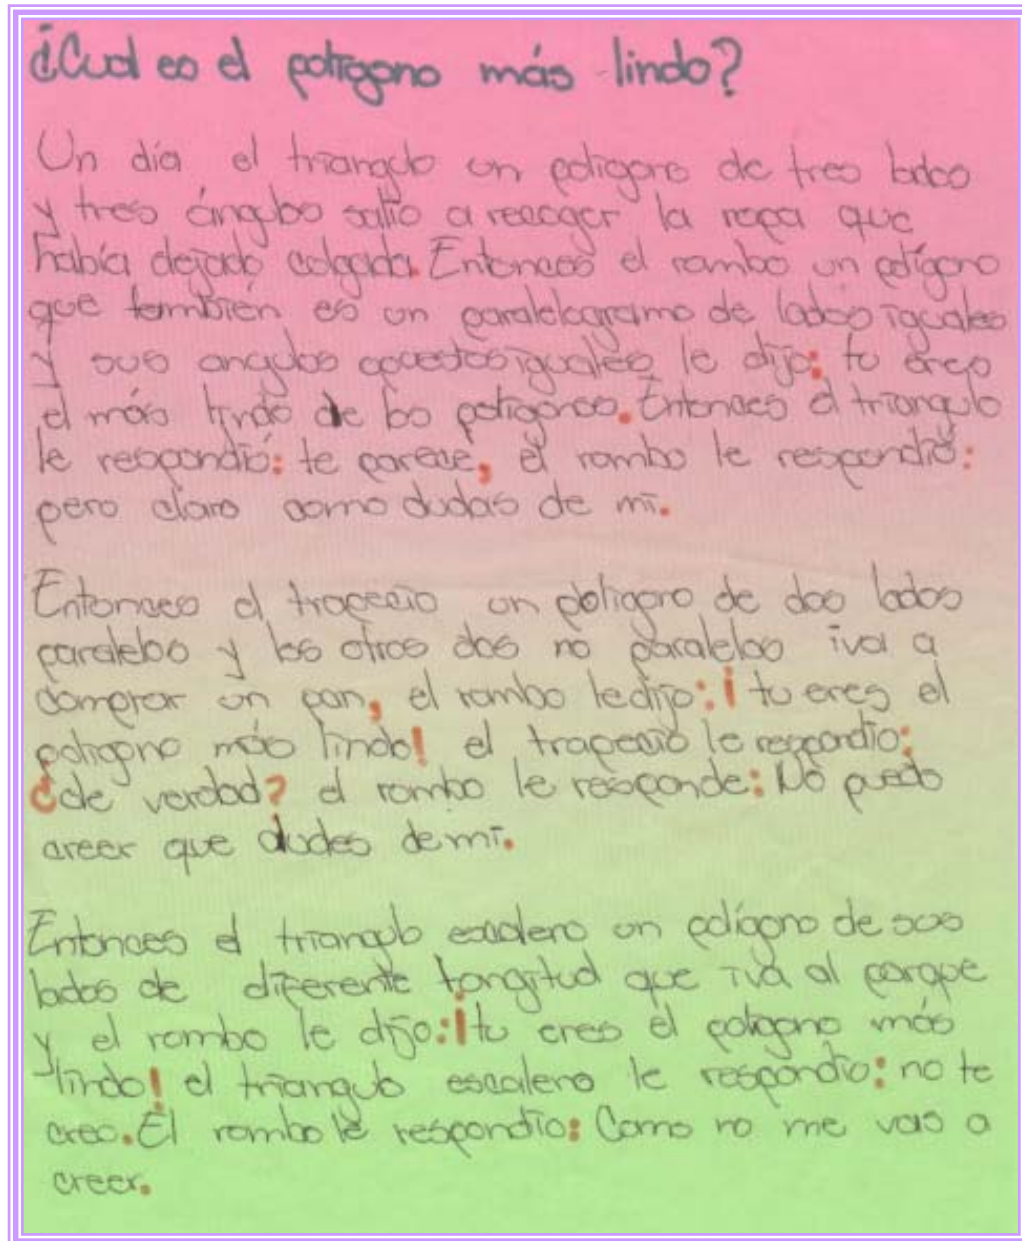 ¿Cual es el poligono más lindo?
Un día el triangulo un poligono de tres lados
y tres ángulos salio a recoger la ropa que
había dejado colgada. Entonces el rombo un polígono
que también es un paralelogramo de lados iguales
y sus angulos opuestos iguales le dijo: tu eres
el más lindo de los poligonos. Entonces el triangulo
le respondió: te parece, el rombo le respondió:
pero claro como dudas de mi.
Entonces el trapecio un poligono de dos lados
paralelos y los otros dos no paralelos iva a
comprar un pan, el rombo le dijo: ¡tu eres el
poligono más lindo! el trapecio le respondio:
¿de verdad? el rombo le responde: No puedo
creer que dudes de mi.
Entonces el triangulo escaleno un polígono de sus
lados de diferente longitud que iva al parque
y el rombo le dijo: ¡tu eres el poligono más
lindo! el triangulo escaleno le respondio: no te
creo. El rombo le respondio: Como no me vas a
creer.